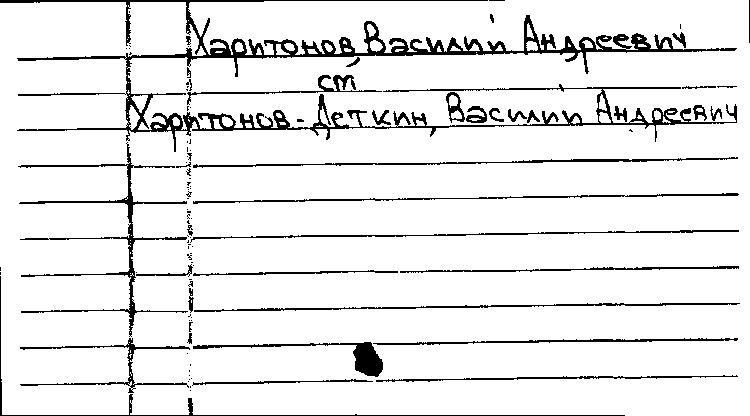 Харитонов, Василий Андреевич
см
Харитонов-Деткин, Василий Андреевич